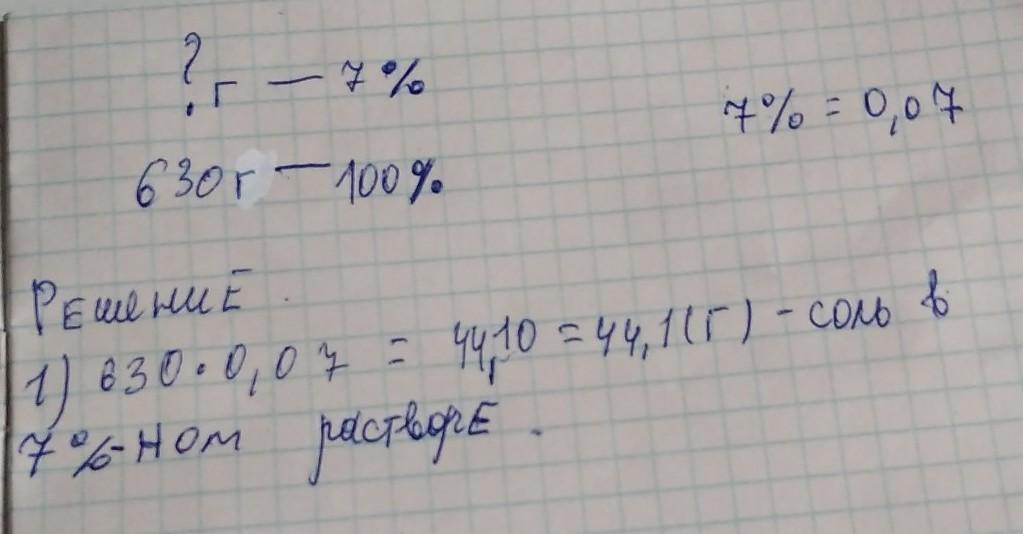 ? г — 7%
7% = 0,07
630 г — 100%
Решение.
1) 630 · 0,07 = 44,10 = 44,1 (г) - соль в
7%-ном растворе.